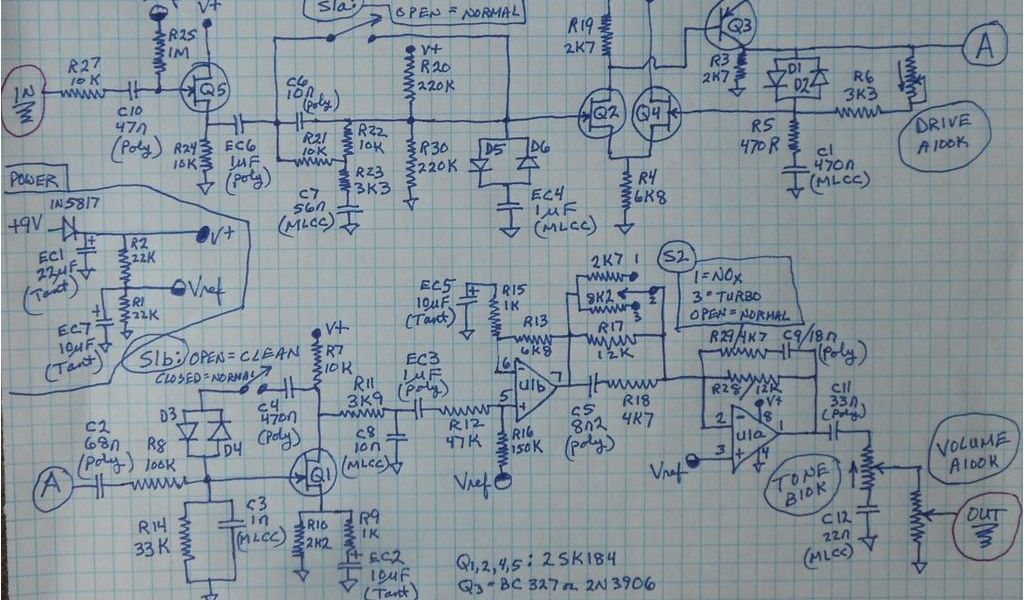 S1a:
OPEN = NORMAL
R25
1M
V+
R27
10K
IN
C10
47n
(Poly)
Q5
R24
10K
EC6
1µF
(poly)
C6
10n
(poly)
R21
10K
R22
10K
R23
3K3
C7
56n
(MLCC)
V+
R20
220K
R30
220K
D5
D6
EC4
1µF
(MLCC)
R19
2K7
Q2
Q4
R4
6K8
Q3
R3
2K7
D1
D2
R6
3K3
R5
470R
C1
470n
(MLCC)
DRIVE
A100K
A
POWER
1N5817
+9V
V+
EC1
22µF
(Tant)
R2
22K
Vref
R1
22K
EC7
10µF
(Tant)
S1b: OPEN = CLEAN
CLOSED = NORMAL
V+
R7
10K
D3
D4
C4
470n
(poly)
C2
68n
(poly)
R8
100K
A
R14
33K
C3
1n
(MLCC)
Q1
R10
2K2
R9
1K
EC2
10µF
(Tant)
R11
3K9
C8
10n
(MLCC)
EC3
1µF
(poly)
R12
47K
EC5
10µF
(Tant)
R15
1K
R13
6K8
6
5
7
U1b
R16
150K
Vref
2K7 1
8K2 2
3
R17
12K
C5
8n2
(poly)
R18
4K7
S2
1 = NOX
3 = TURBO
OPEN = NORMAL
R29/4K7
C9/18n
(poly)
R28/12K
V+
8
2
3
1
4
U1a
Vref
C11
33n
(poly)
TONE
B10K
C12
22n
(MLCC)
VOLUME
A100K
OUT
Q1,2,4,5: 2SK184
Q3 = BC 327 or 2N3906